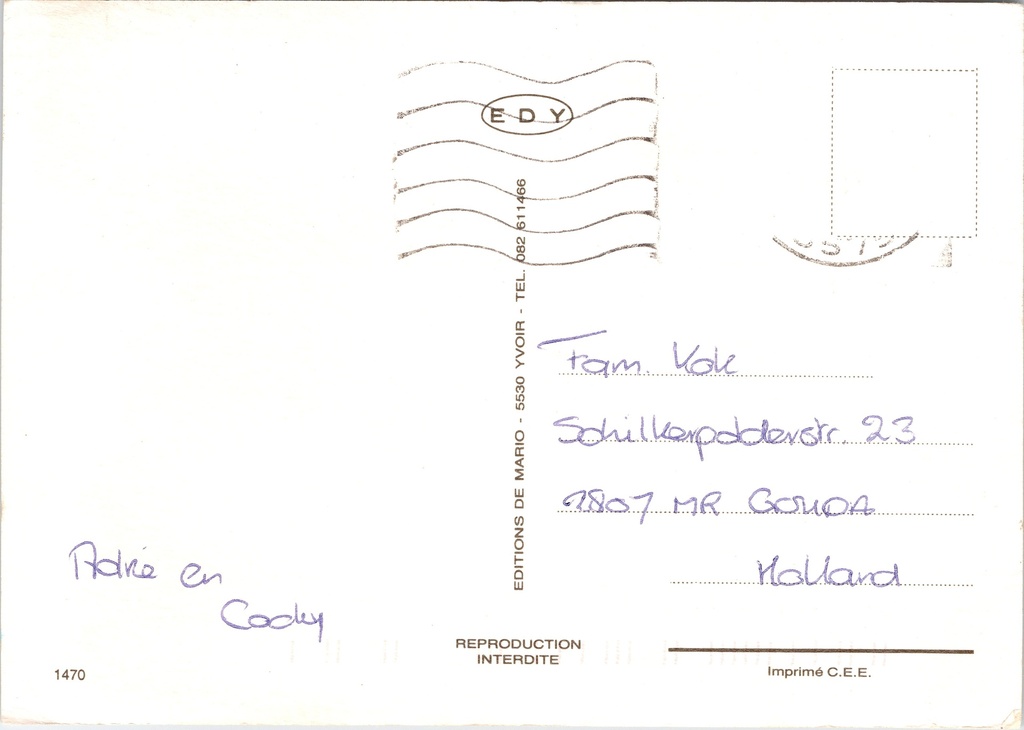 EDY
EDITIONS DE MARIO - 5530 YVOIR - TEL. 082 611466
Fam. Kok
Schilkerpadderstr. 23
2807 MR GOUDA
Holland
Adrie en
Cocky
REPRODUCTION
INTERDITE
1470
Imprimé C.E.E.